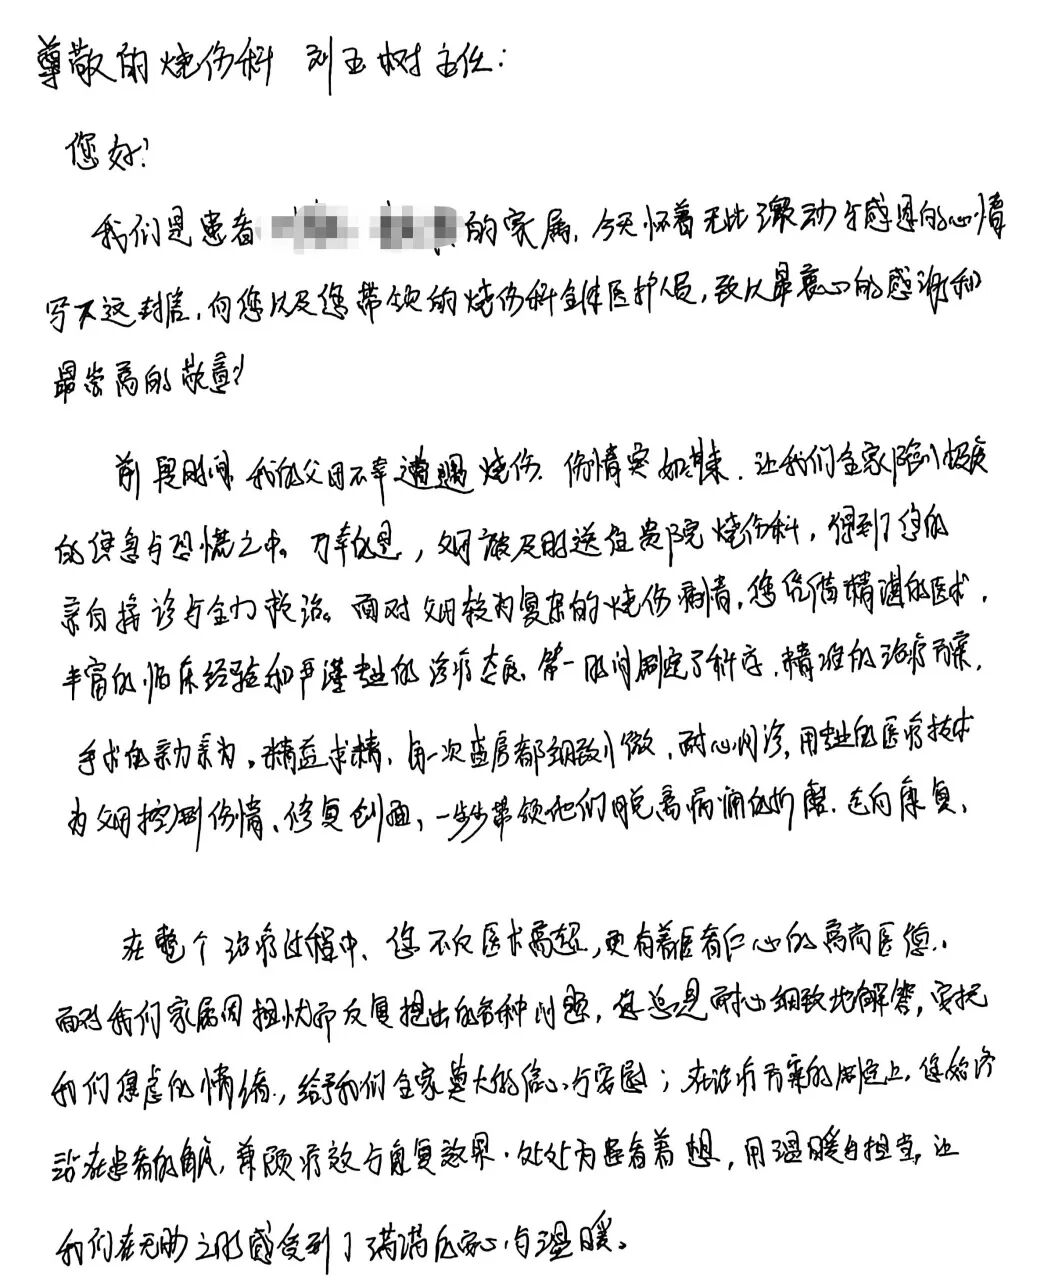 尊敬的烧伤科 刘玉树主任：
您好！
我们是患者的家属，今天怀着无比激动与感恩的心情
写下这封信，向您以及您带领的烧伤科全体医护人员，致以最衷心的感谢和
最崇高的敬意！
前段时间，我的父母不幸遭遇烧伤，伤情突如其来，让我们全家陷入极度
的焦急与恐慌之中。万幸的是，父母被及时送往贵院烧伤科，得到了您的
亲自接诊与全力救治。面对父母较为复杂的烧伤病情，您凭借精湛的医术，
丰富的临床经验和严谨专业的诊疗态度，第一时间制定了科学，精准的治疗方案，
手术他亲力亲为。精益求精，每一次查房都细致入微，耐心问诊，用专业的医疗技术
为父母控制伤情、修复创面，一步步带领他们脱离病痛的折磨，走向康复。
在整个治疗过程中，您不仅医术高超，更有着医者仁心的高尚医德。
面对我们家属因担忧而反复提出的各种问题，您总是耐心细致地解答，安抚
我们焦虑的情绪，给予我们全家莫大的信心与安慰；在治疗方案的制定上，您始终
站在患者的角度，兼顾疗效与康复效果，处处为患者着想，用温暖与担当，让
我们在无助之时感受到了满满的安心与温暖。